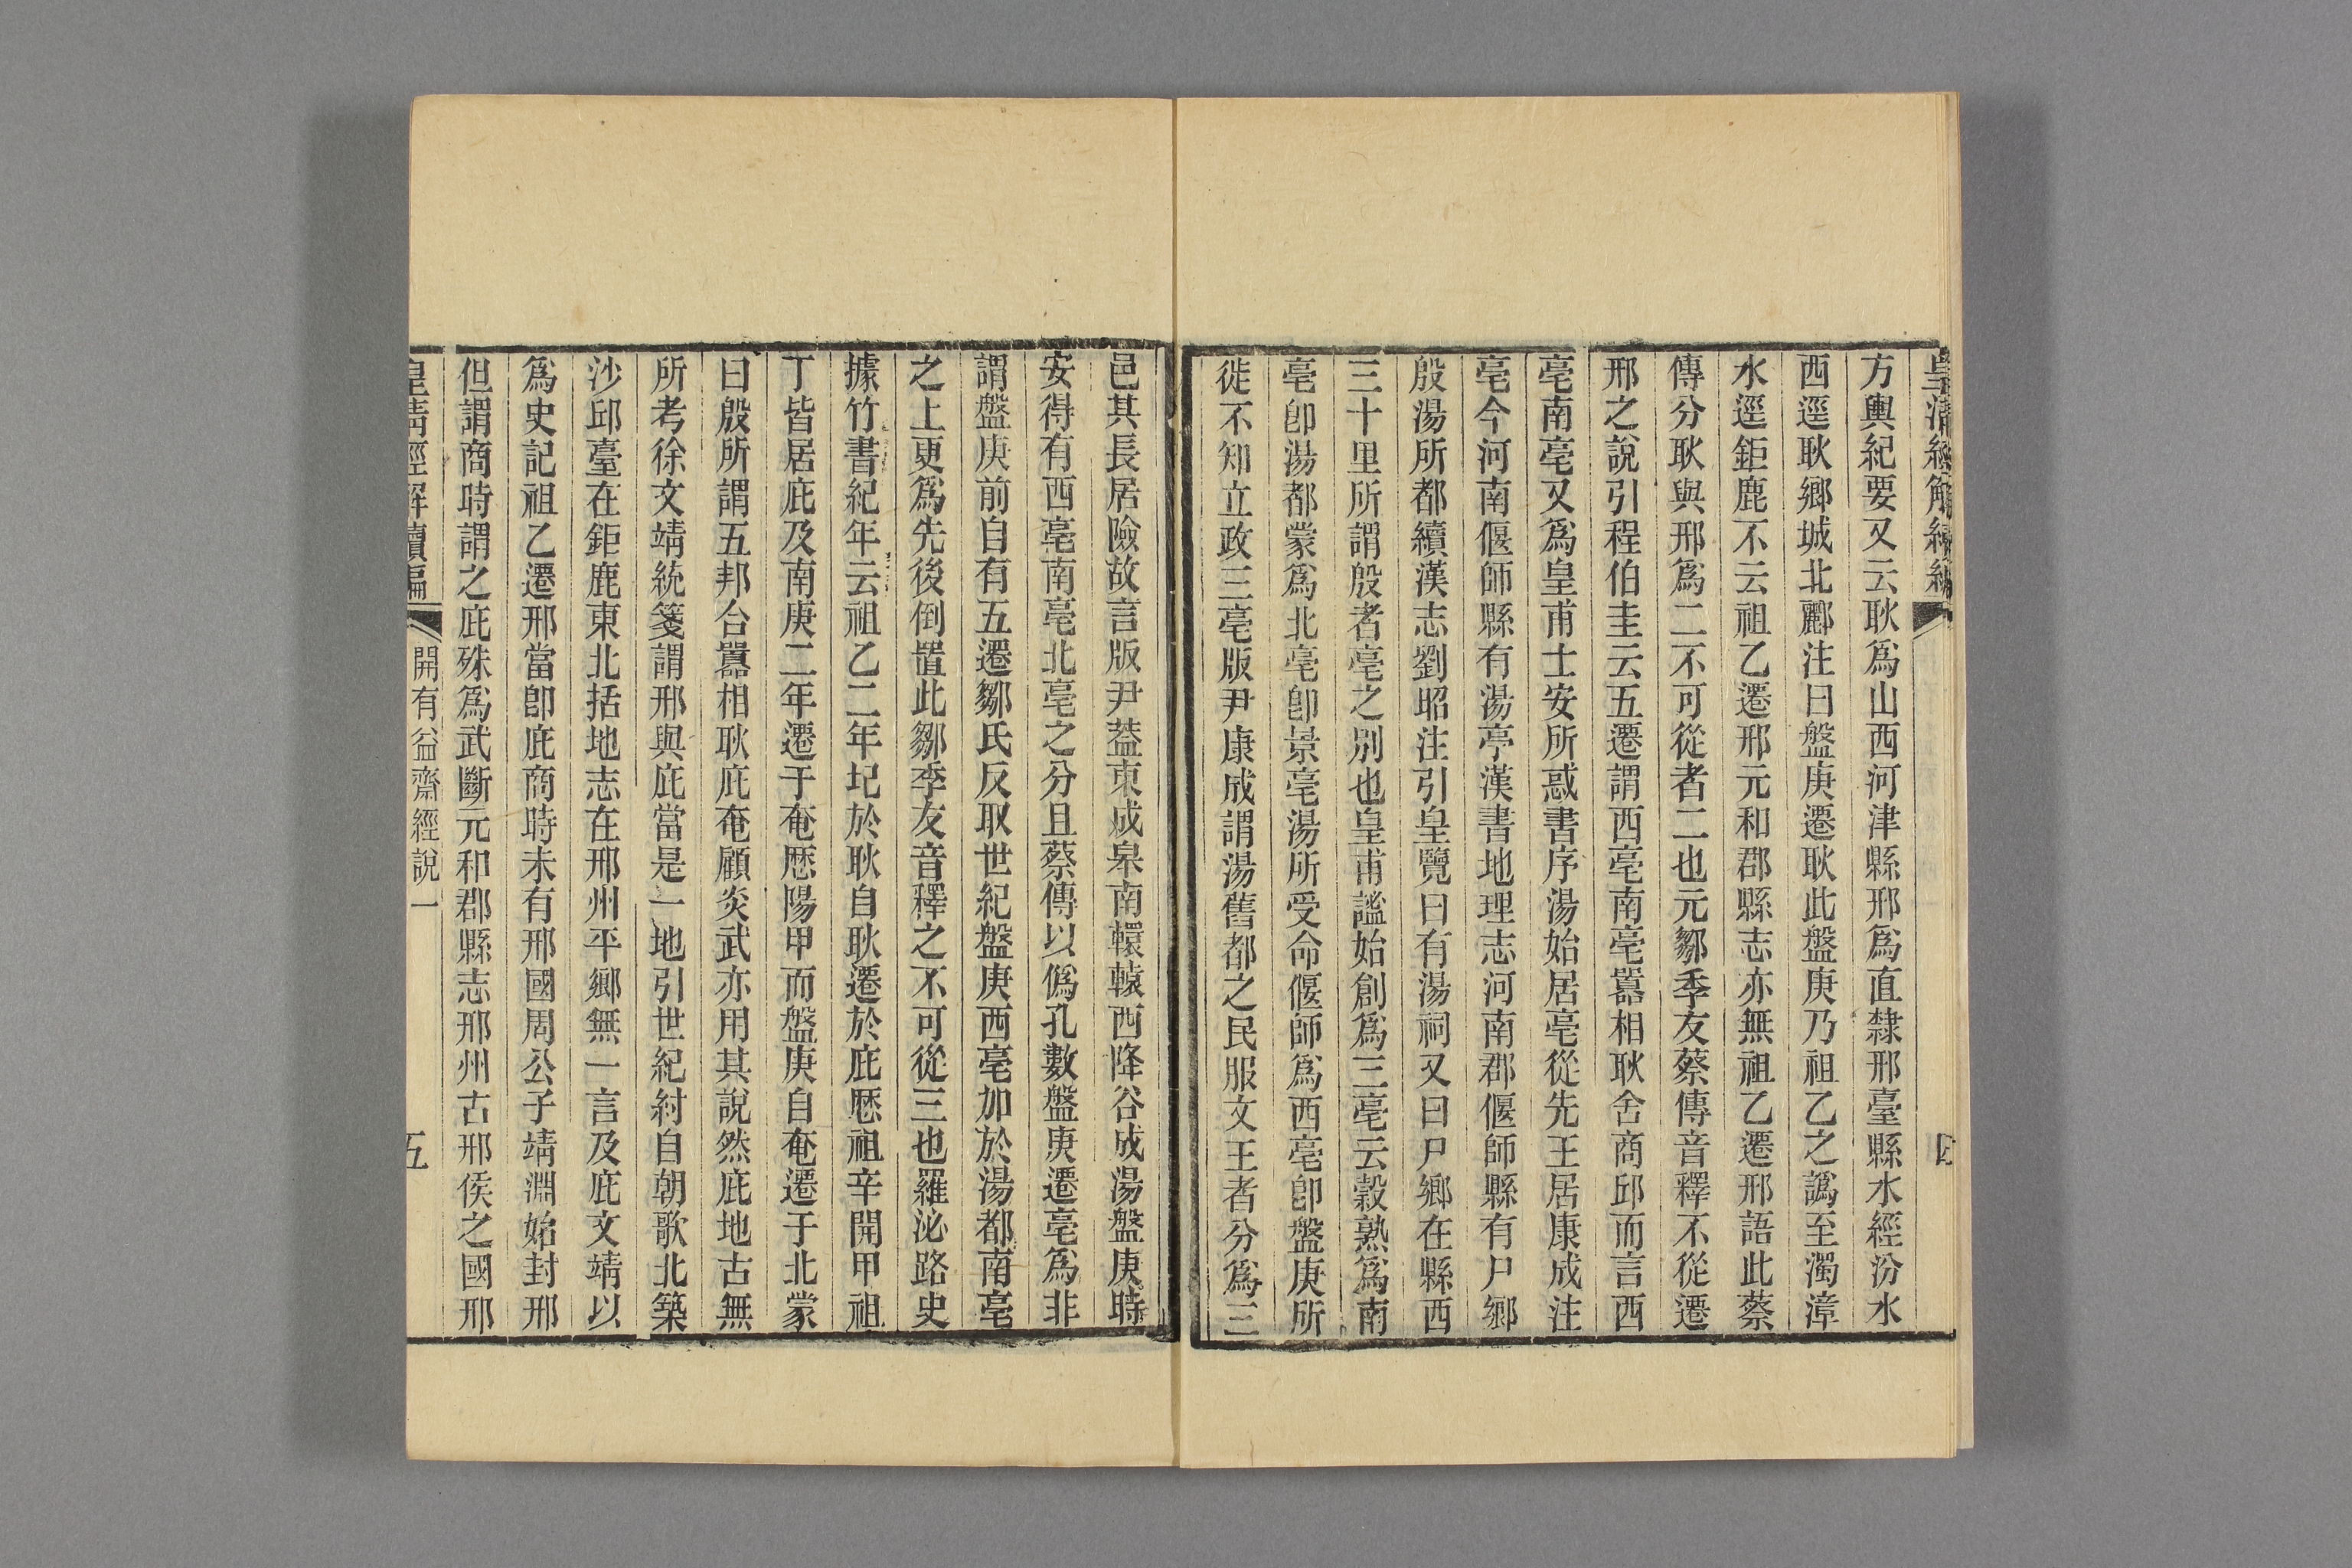 皇清經解續編 四
方輿紀要又云耿爲山西河津縣邢爲直隸邢臺縣水經汾水
西逕耿鄉城北酈注曰盤庚遷耿此盤庚乃祖乙之譌至濁漳
水逕鉅鹿不云祖乙遷邢元和郡縣志亦無祖乙遷邢語此蔡
傳分耿與邢爲二不可從者二也元鄒季友蔡傳音釋不從遷
邢之說引程伯圭云五遷謂西亳南亳囂相耿舍商邱而言西
亳南亳又爲皇甫士安所惑書序湯始居亳從先王居康成注
亳今河南偃師縣有湯亭漢書地理志河南郡偃師縣有尸鄉
殷湯所都續漢志劉昭注引皇覽曰有湯祠又曰尸鄉在縣西
三十里所謂殷者亳之別也皇甫謐始創爲三亳云穀熟爲南
亳卽湯都蒙爲北亳卽景亳湯所受命偃師爲西亳卽盤庚所
徙不知立政三亳版尹康成謂湯舊都之民服文王者分爲三
邑其長居險故言版尹葢東成皋南轘轅西降谷成湯盤庚時
安得有西亳南亳北亳之分且蔡傳以僞孔數盤庚遷亳爲非
謂盤庚前自有五遷鄒氏反取世紀盤庚西亳加於湯都南亳
之上更爲先後倒置此鄒季友音釋之不可從三也羅泌路史
據竹書紀年云祖乙二年圮於耿自耿遷於庇歷祖辛開甲祖
丁皆居庇及南庚二年遷于奄歷陽甲而盤庚自奄遷于北蒙
曰殷所謂五邦台囂相耿庇奄顧炎武亦用其說然庇地古無
所考徐文靖統箋謂邢與庇當是一地引世紀紂自朝歌北築
沙邱臺在鉅鹿東北括地志在邢州平鄉無一言及庇文靖以
爲史記祖乙遷邢當卽庇商時未有邢國周公子靖淵始封邢
但謂商時謂之庇殊爲武斷元和郡縣志邢州古邢侯之國邢
皇清經解續編 開有益齋經說一 五